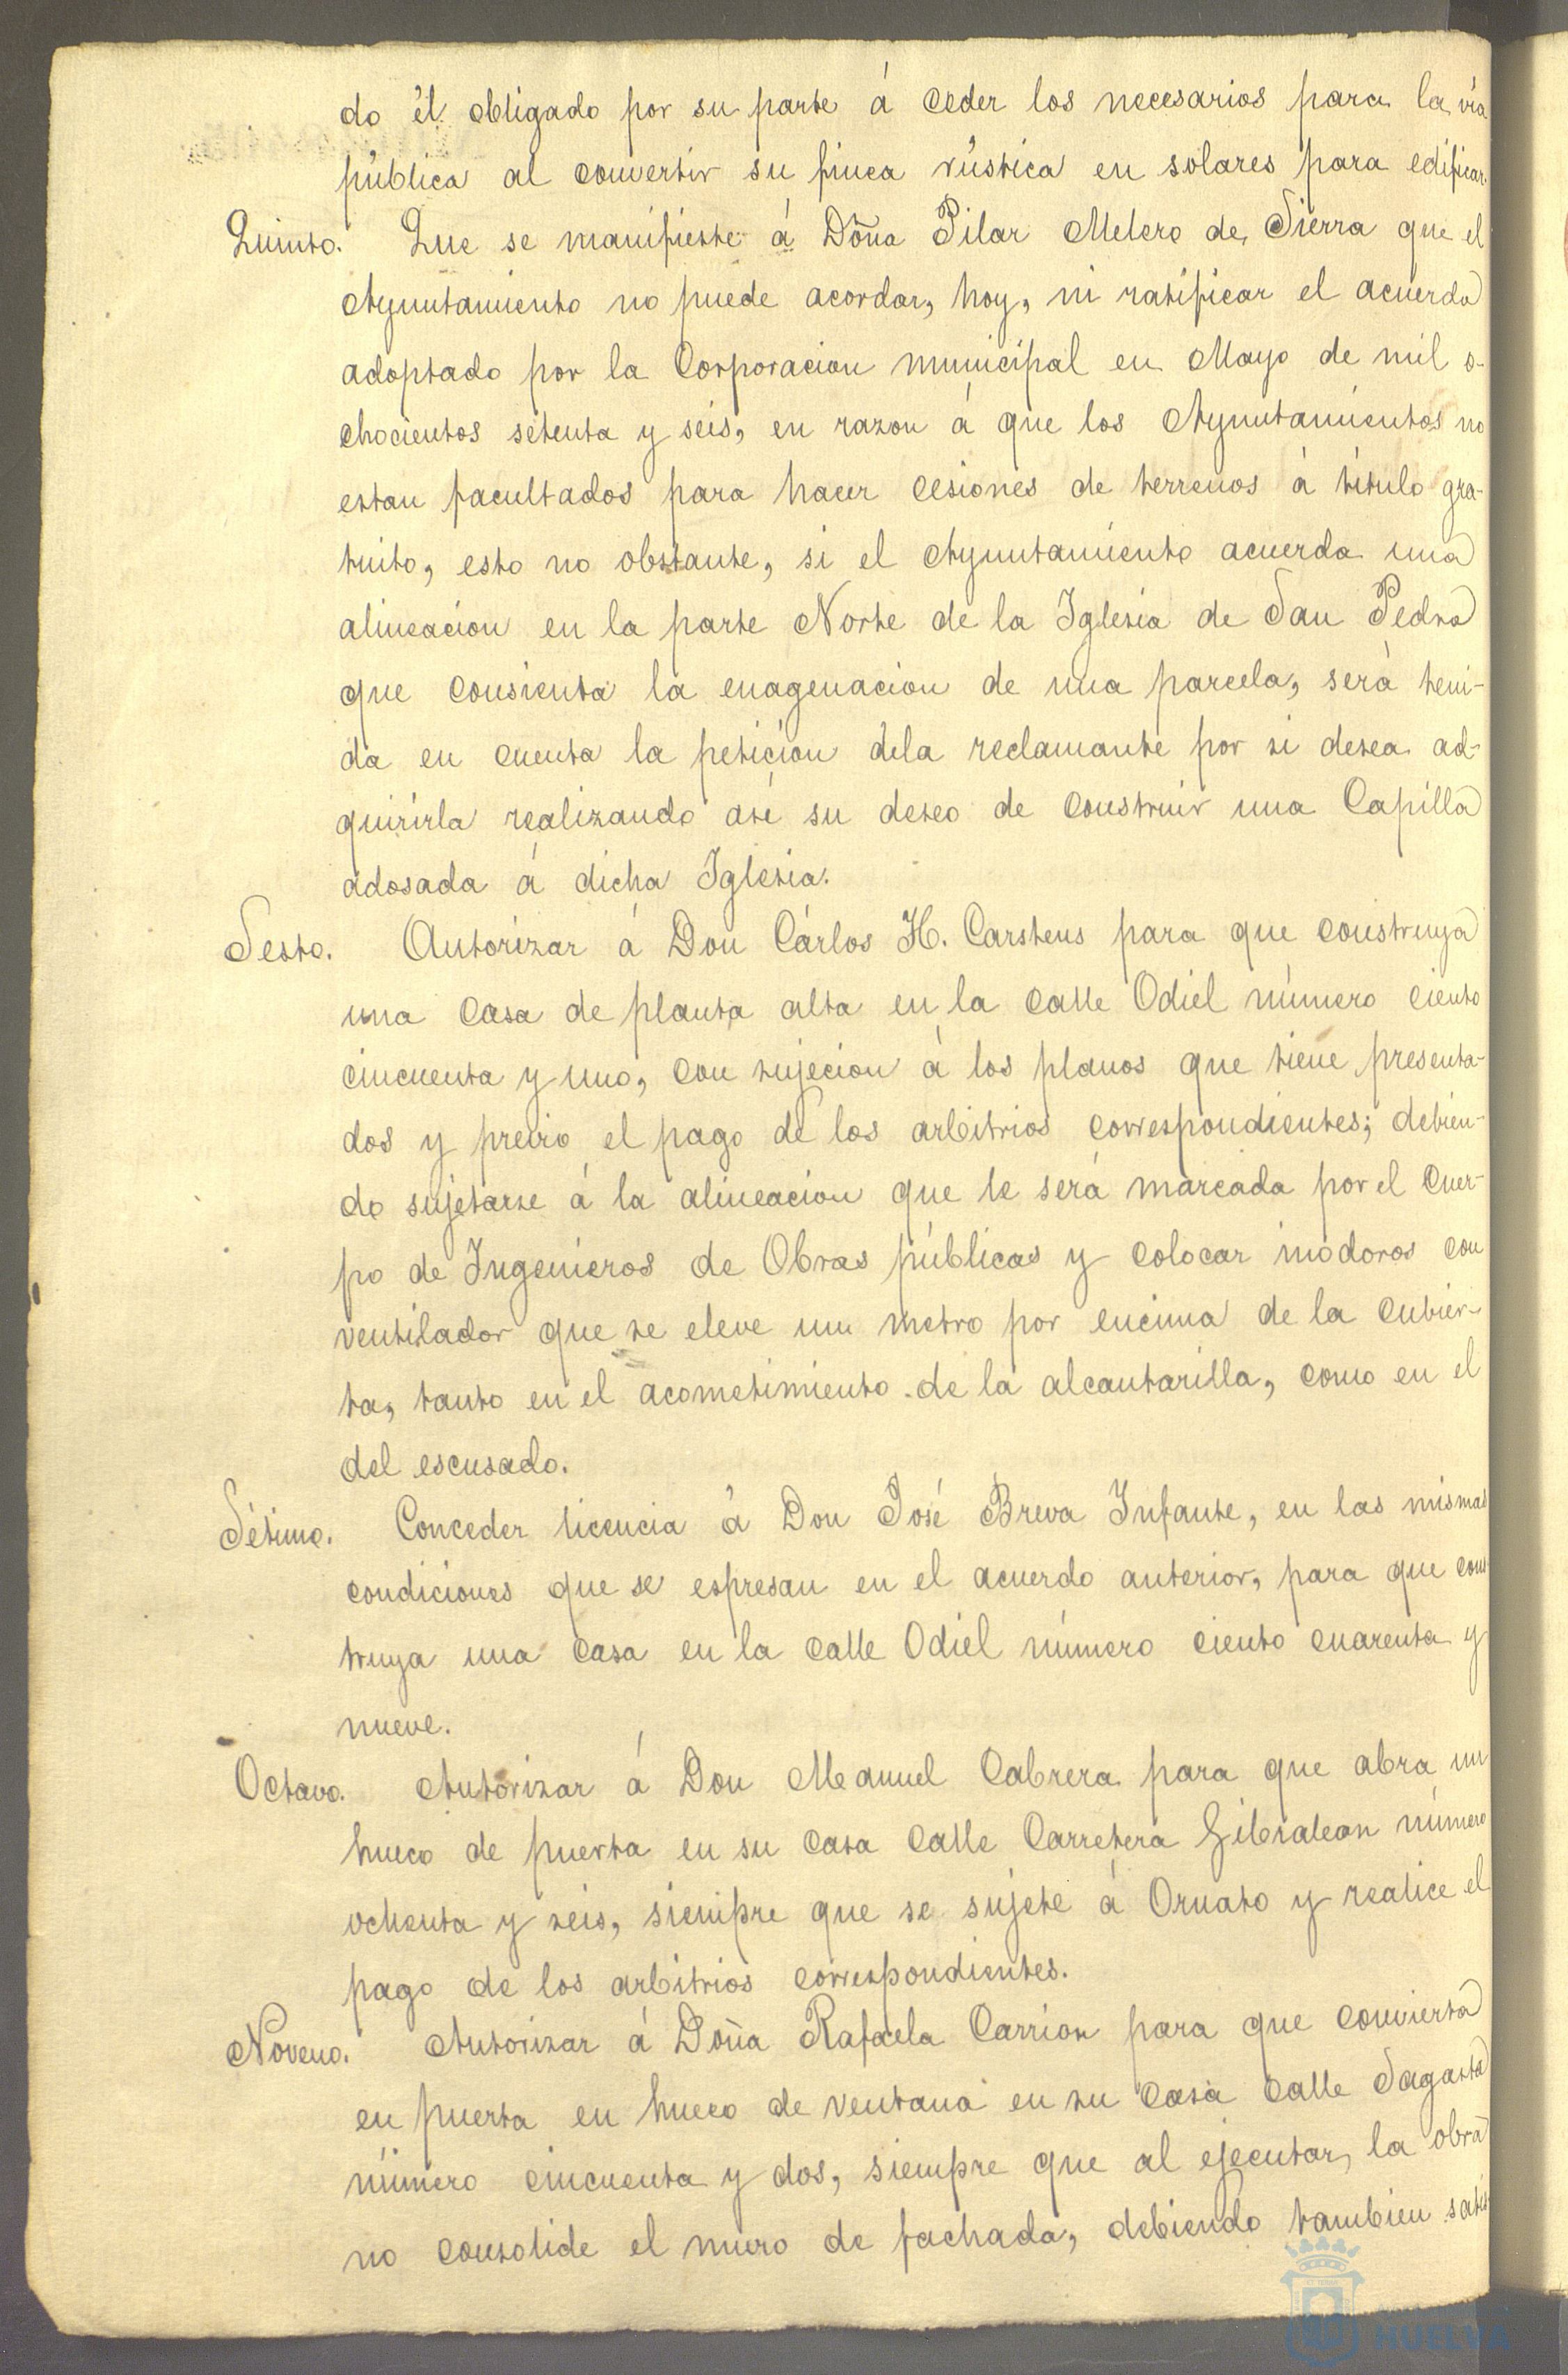 do él obligado por su parte á ceder los necesarios para la via
pública al convertir su finca rústica en solares para edificar.
Quinto. Que se manifieste á Doña Pilar Melero de Sierra que el
Ayuntamiento no puede acordar, hoy, ni ratificar el acuerdo
adoptado por la Corporacion municipal en Mayo de mil o-
chocientos setenta y seis, en razon á que los Ayuntamientos no
estan facultados para hacer cesiones de terrenos á título gra-
tuito, esto no obstante, si el Ayuntamiento acuerda una
alineacion en la parte Norte de la Iglesia de San Pedro
que consienta la enagenacion de una parcela, será teni-
da en cuenta la peticion dela reclamante por si desea ad-
quirirla realizando asi su deseo de construir una Capilla
adosada á dicha Iglesia.
Sesto. Autorizar á Don Cárlos H. Carstens para que construya
una casa de planta alta en la calle Odiel número ciento
cincuenta y uno, con sujecion á los planos que tiene presenta-
dos y previo el pago de los arbitrios correspondientes; debien-
do sujetarse á la alineacion que le será marcada por el Cuer-
po de Ingenieros de Obras públicas y colocar inodoros con
ventilador que se eleve un metro por encima de la cubier-
ta, tanto en el acometimiento de la alcantarilla, como en el
del escusado.
Sétimo. Conceder licencia á Don José Breva Infante, en las mismas
condiciones que se espresan en el acuerdo anterior, para que cons
truya una casa en la calle Odiel número ciento cuarenta y
nueve.
Octavo. Autorizar á Don Manuel Cabrera para que abra un
hueco de puerta en su casa calle Carretera Gibraleon número
ochenta y seis, siempre que se sujete á Ornato y realice el
pago de los arbitrios correspondientes.
Noveno. Autorizar á Doña Rafaela Carrion para que convierta
en puerta en hueco de ventana en su casa calle Sagasta
número cincuenta y dos, siempre que al ejecutar la obra
no consolide el muro de fachada, debiendo tambien satis
HUELVA